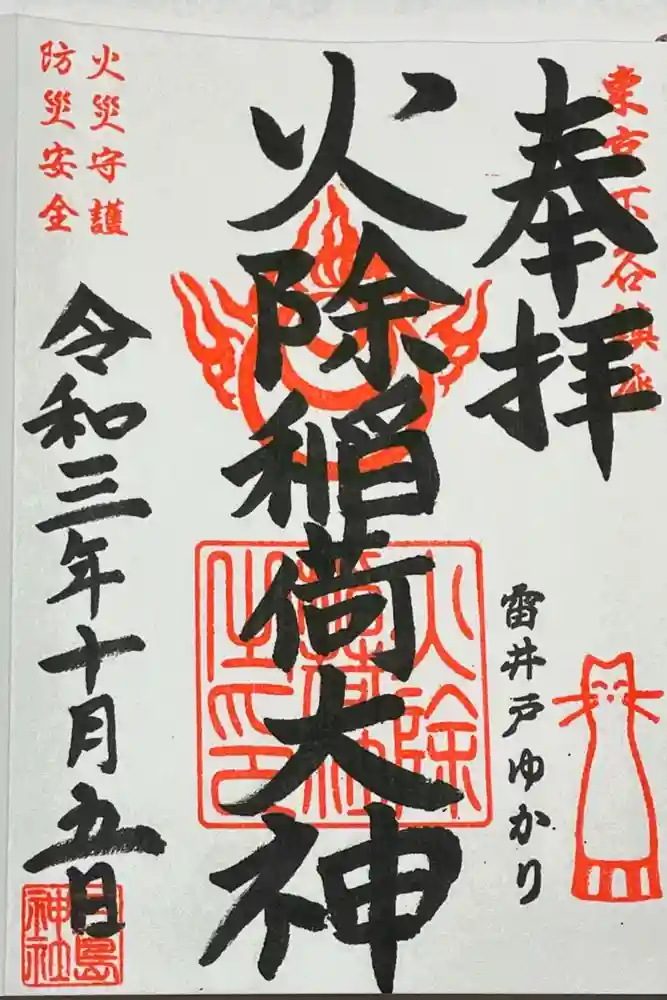 東京下谷鎮座
奉拝
雷井戸ゆかり
火除稲荷大神
火除
稲荷
之印
火災守護
防災安全
令和三年十月五日
神社